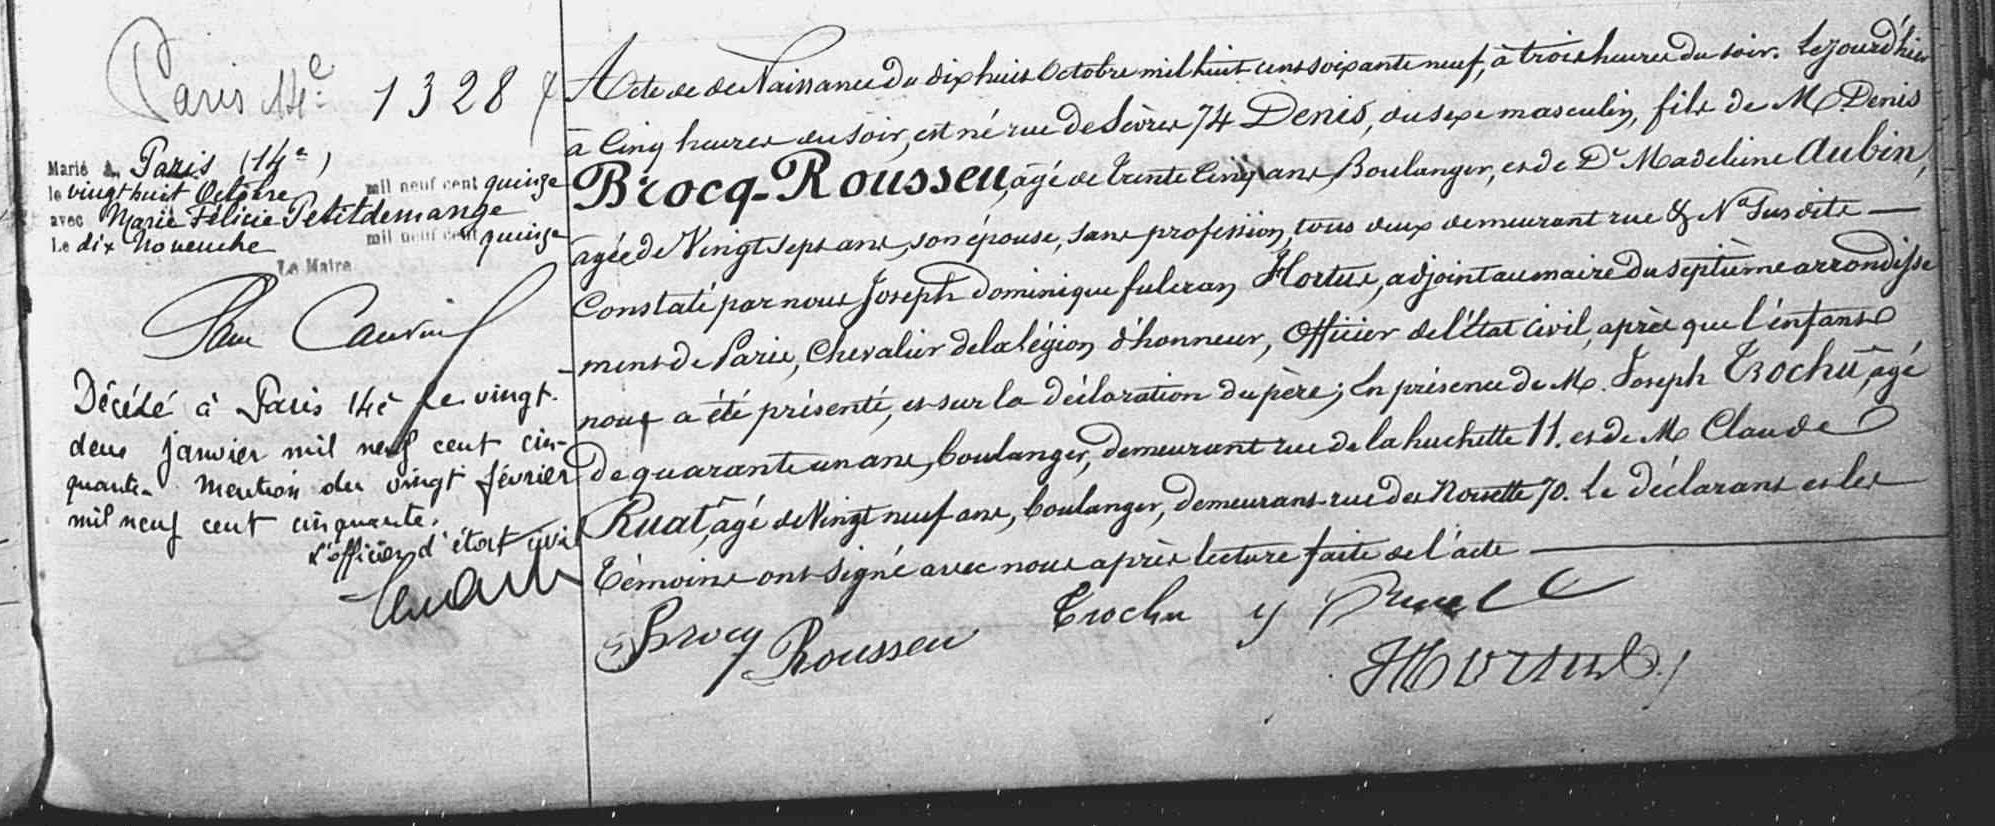 Paris 14e 1328
Marié à Paris (14e)
le vingt huit Octobre mil neuf cent quinze
avec Marie Félicie Petitdemange
Le dix Novembre mil neuf cent quinze
Le Maire
Décédé à Paris 14e le vingt-
deux janvier mil neuf cent cin-
quante. Mention du vingt février
mil neuf cent cinquante.
L'officier d'état civil
Acte de de Naissance du dix huit Octobre mil huit cent soixante neuf, à trois heures du soir. Le jour d'hier
à Cinq heures du soir, est né rue de Sèvres 74 Denis, du sexe masculin, fils de M. Denis
Brocq-Rousseu, âgé de trente Cinq ans, Boulanger, et de De Madeleine Aubin,
âgée de Vingt sept ans, son épouse, sans profession, tous deux demeurant rue & No Susdits —
Constaté par nous Joseph Dominique fulcran Hortus, adjoint au maire du septième arrondisse
-ment de Paris, Chevalier de la Légion d'honneur, Officier de l'État civil, après que l'enfant
nous a été présenté, et sur la déclaration du père; En présence de M. Joseph Trochu, âgé
de quarante un ans, boulanger, demeurant rue de la huchette 11. et de M. Claude
Ruat, âgé de Vingt neuf ans, boulanger, demeurant rue 70. Le déclarant et les
témoins ont signé avec nous après lecture faite de l'acte —
Brocq Rousseu Trochu
Hortus